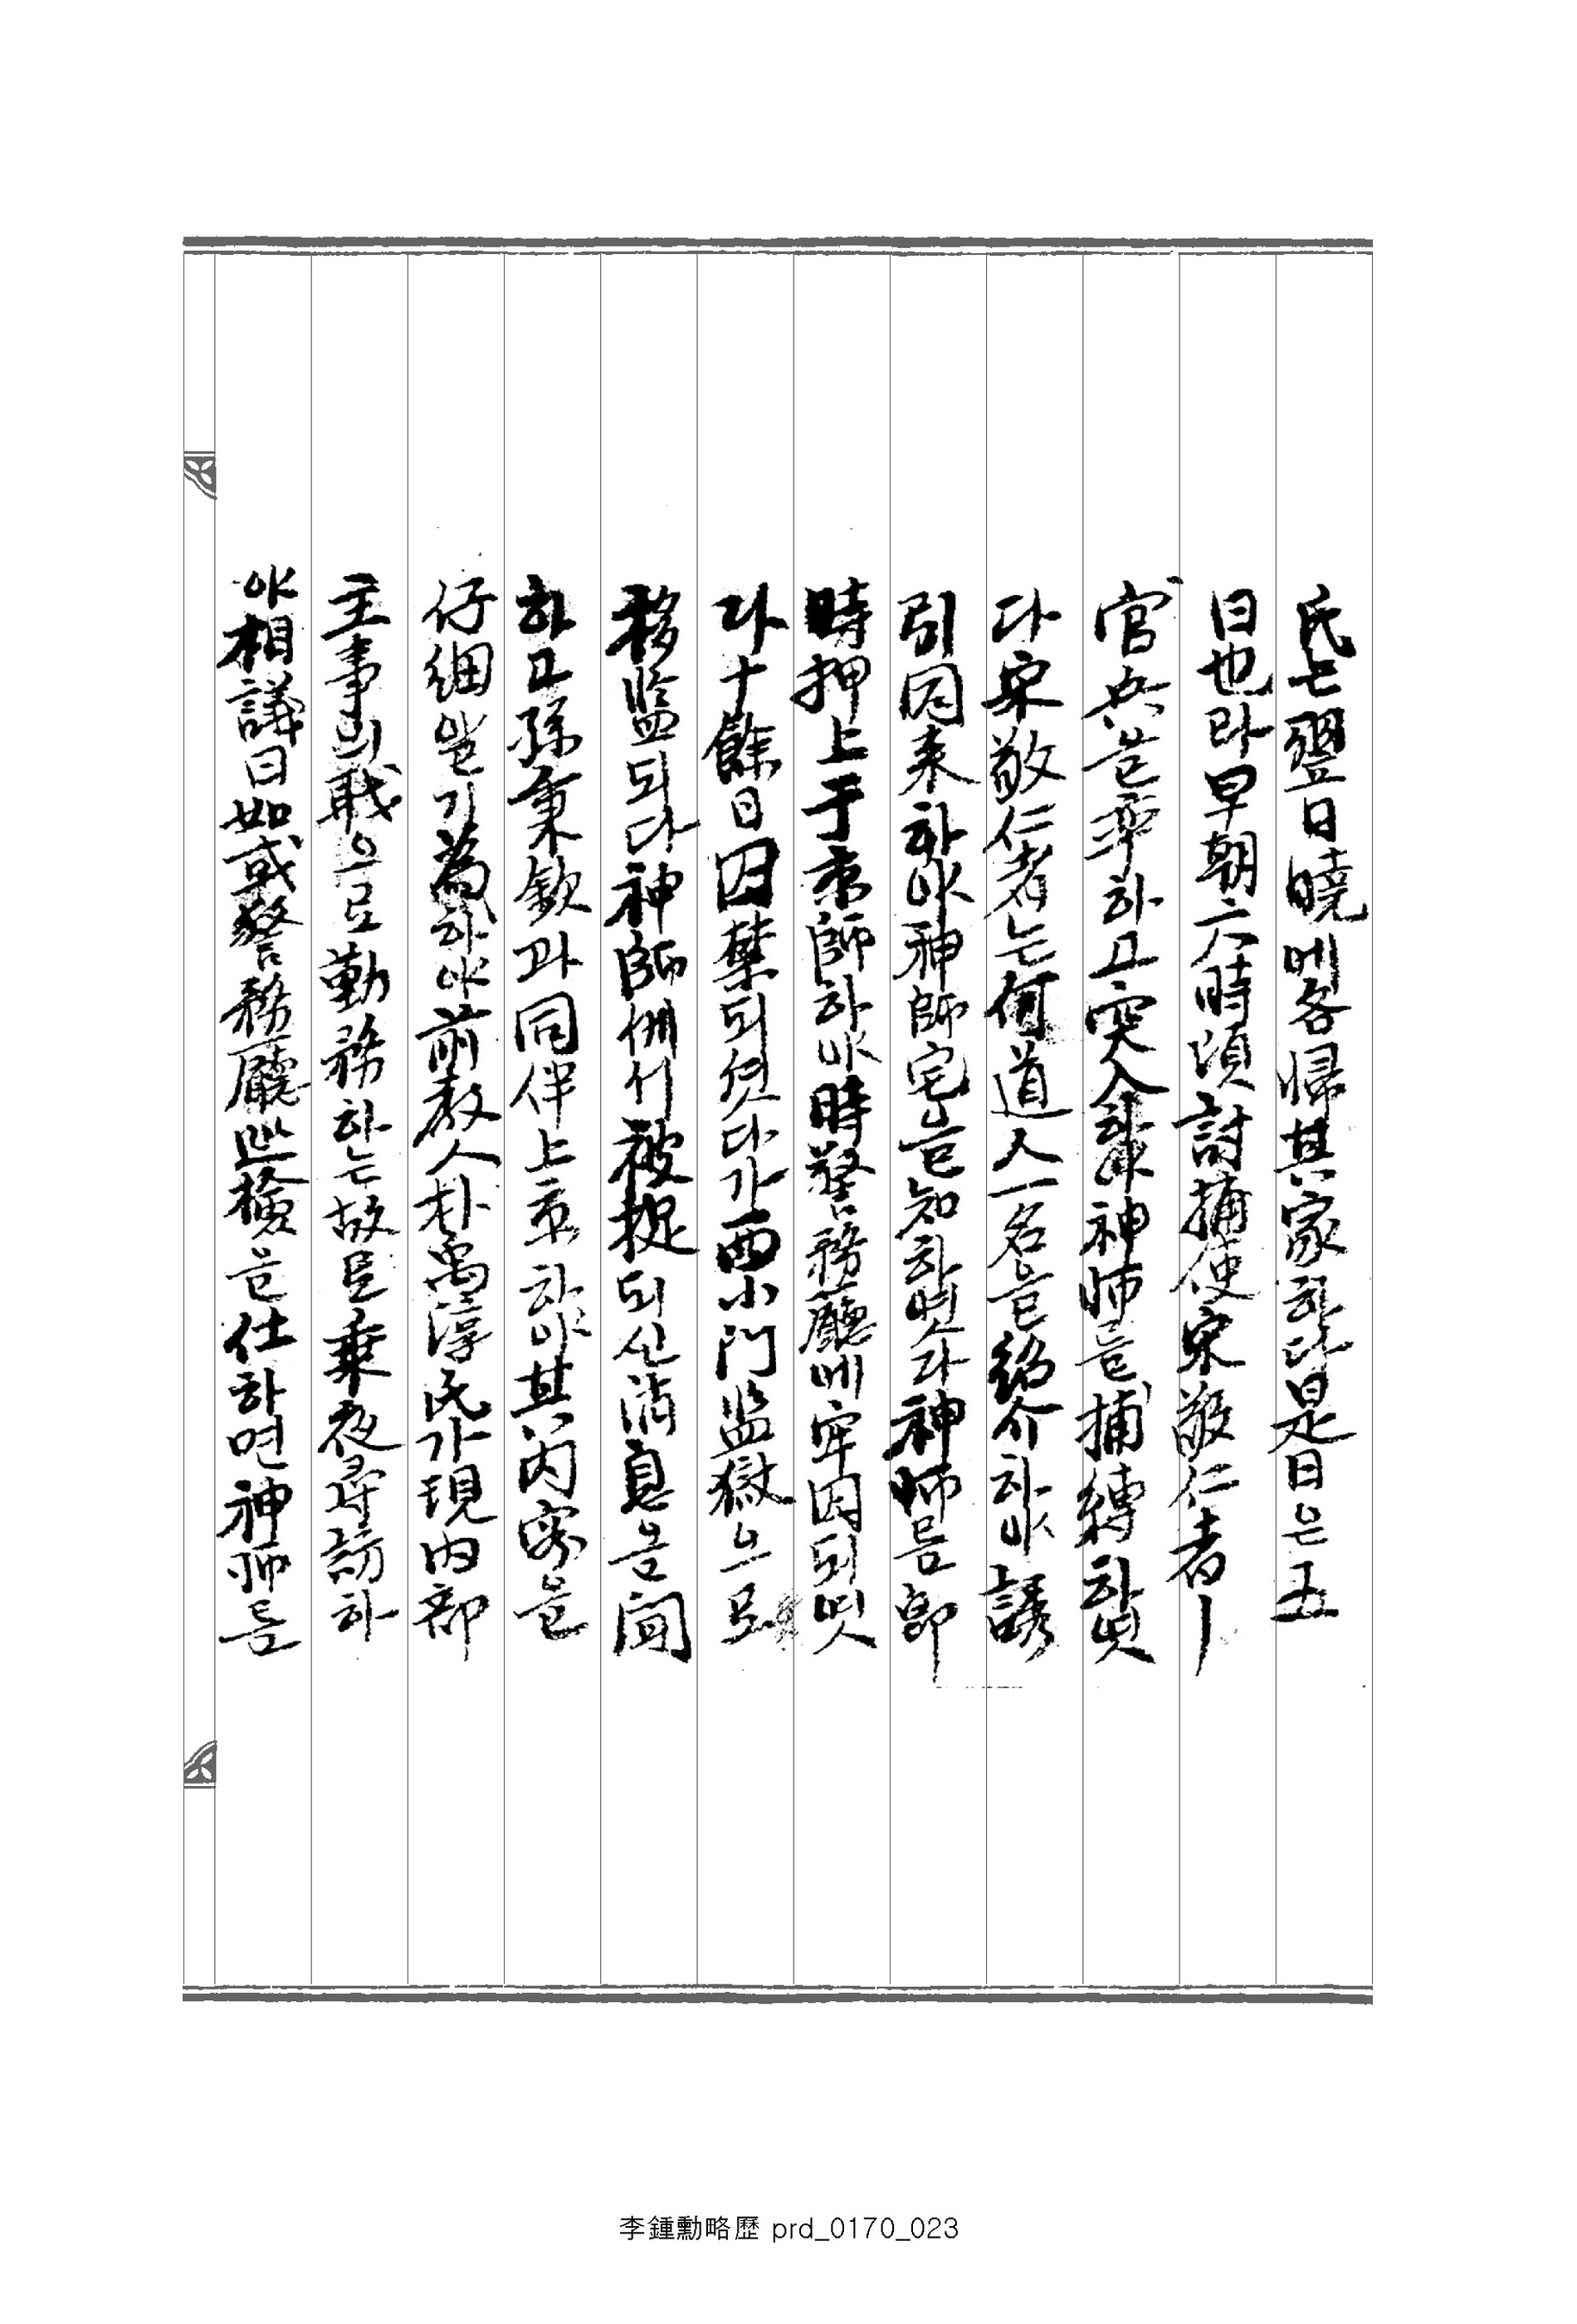 氏七翌日曉에各歸其家하다是日은五
日也라早朝六時頃討捕使宋敬仁者ㅣ
官兵을率하고突入하야神師를捕縛하엿
다宋敬仁者는何道人一名을紹介하야誘
引同來하야神師宅을知하엿다神師를卽
時押上于京師하야時警務廳에牢囚되엿
다十餘日囚禁되엿다가西小門監獄으로
移監되다神師께서被捉되신消息을聞
하고孫秉欽과同伴上京하야其內容을
仔細알기爲하야前敎人朴禹淳氏가現內部
主事의職으로勤務하는故로乘夜尋訪하
야相議曰如或警務廳巡檢을仕하면神師를
李鍾勳略歷 prd_0170_023